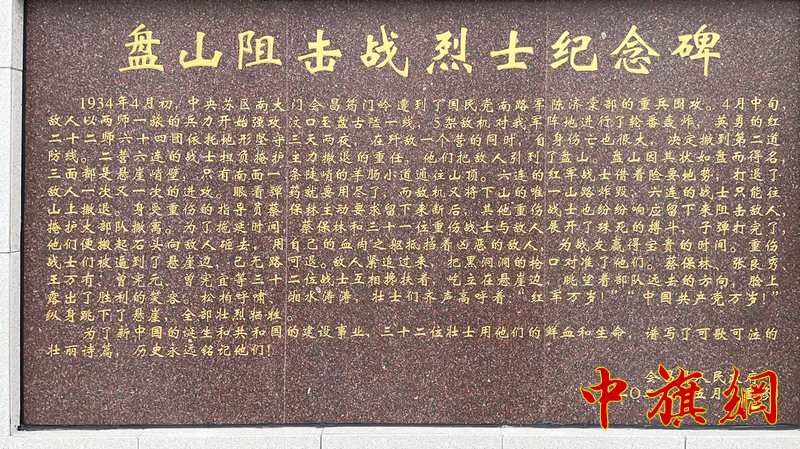 盘山阻击战烈士纪念碑
1934年4月初，中央苏区南大门会昌筠门岭遭到了国民党南路军陈济棠部的重兵围攻。4月中旬，
敌人以两师一旅的兵力开始强攻汶口至盘古隘一线，5架敌机对我军阵地进行了轮番轰炸，英勇的红
二十二师六十四团依托地形坚守三天两夜，在歼敌一个营的同时，自身伤亡也很大，决定撤到第二道
防线。二营六连的战士担负掩护主力撤退的重任，他们把敌人引到了盘山。盘山因其状如盘而得名，
三面都是悬崖峭壁，只有南面一条陡峭的羊肠小道通往山顶。六连的红军战士借着险要地势，打退了
敌人一次又一次的进攻。眼看弹药就要用尽了，而敌机又将下山的唯一山路炸毁，六连的战士只能往
山上撤退。身受重伤的指导员蔡保林主动要求留下来断后，其他重伤战士也纷纷响应留下来阻击敌人，
掩护大部队撤离。为了拖延时间，蔡保林和三十一位重伤战士与敌人展开了殊死的搏斗，子弹打完了，
他们便搬起石头向敌人砸去，用自己的血肉之躯抵挡着凶恶的敌人，为战友赢得宝贵的时间。重伤
战士们被逼到了悬崖边，已无路可退。敌人紧追过来，把黑洞洞的枪口对准了他们。蔡保林、张良秀、
王万有，曾宪元、曾宪宜等三十二位战士互相搀扶着，屹立在悬崖边，眺望着部队远去的方向，脸上
露出了胜利的笑容。松柏呼啸，湘水涛涛，壮士们齐声高呼着：“红军万岁！”“中国共产党万岁！”
纵身跳下了悬崖，全部壮烈牺牲。
为了新中国的诞生和共和国的建设事业，三十二位壮士用他们的鲜血和生命，谱写了可歌可泣的
壮丽诗篇，历史永远铭记他们！
会 人民
五月
中旗網